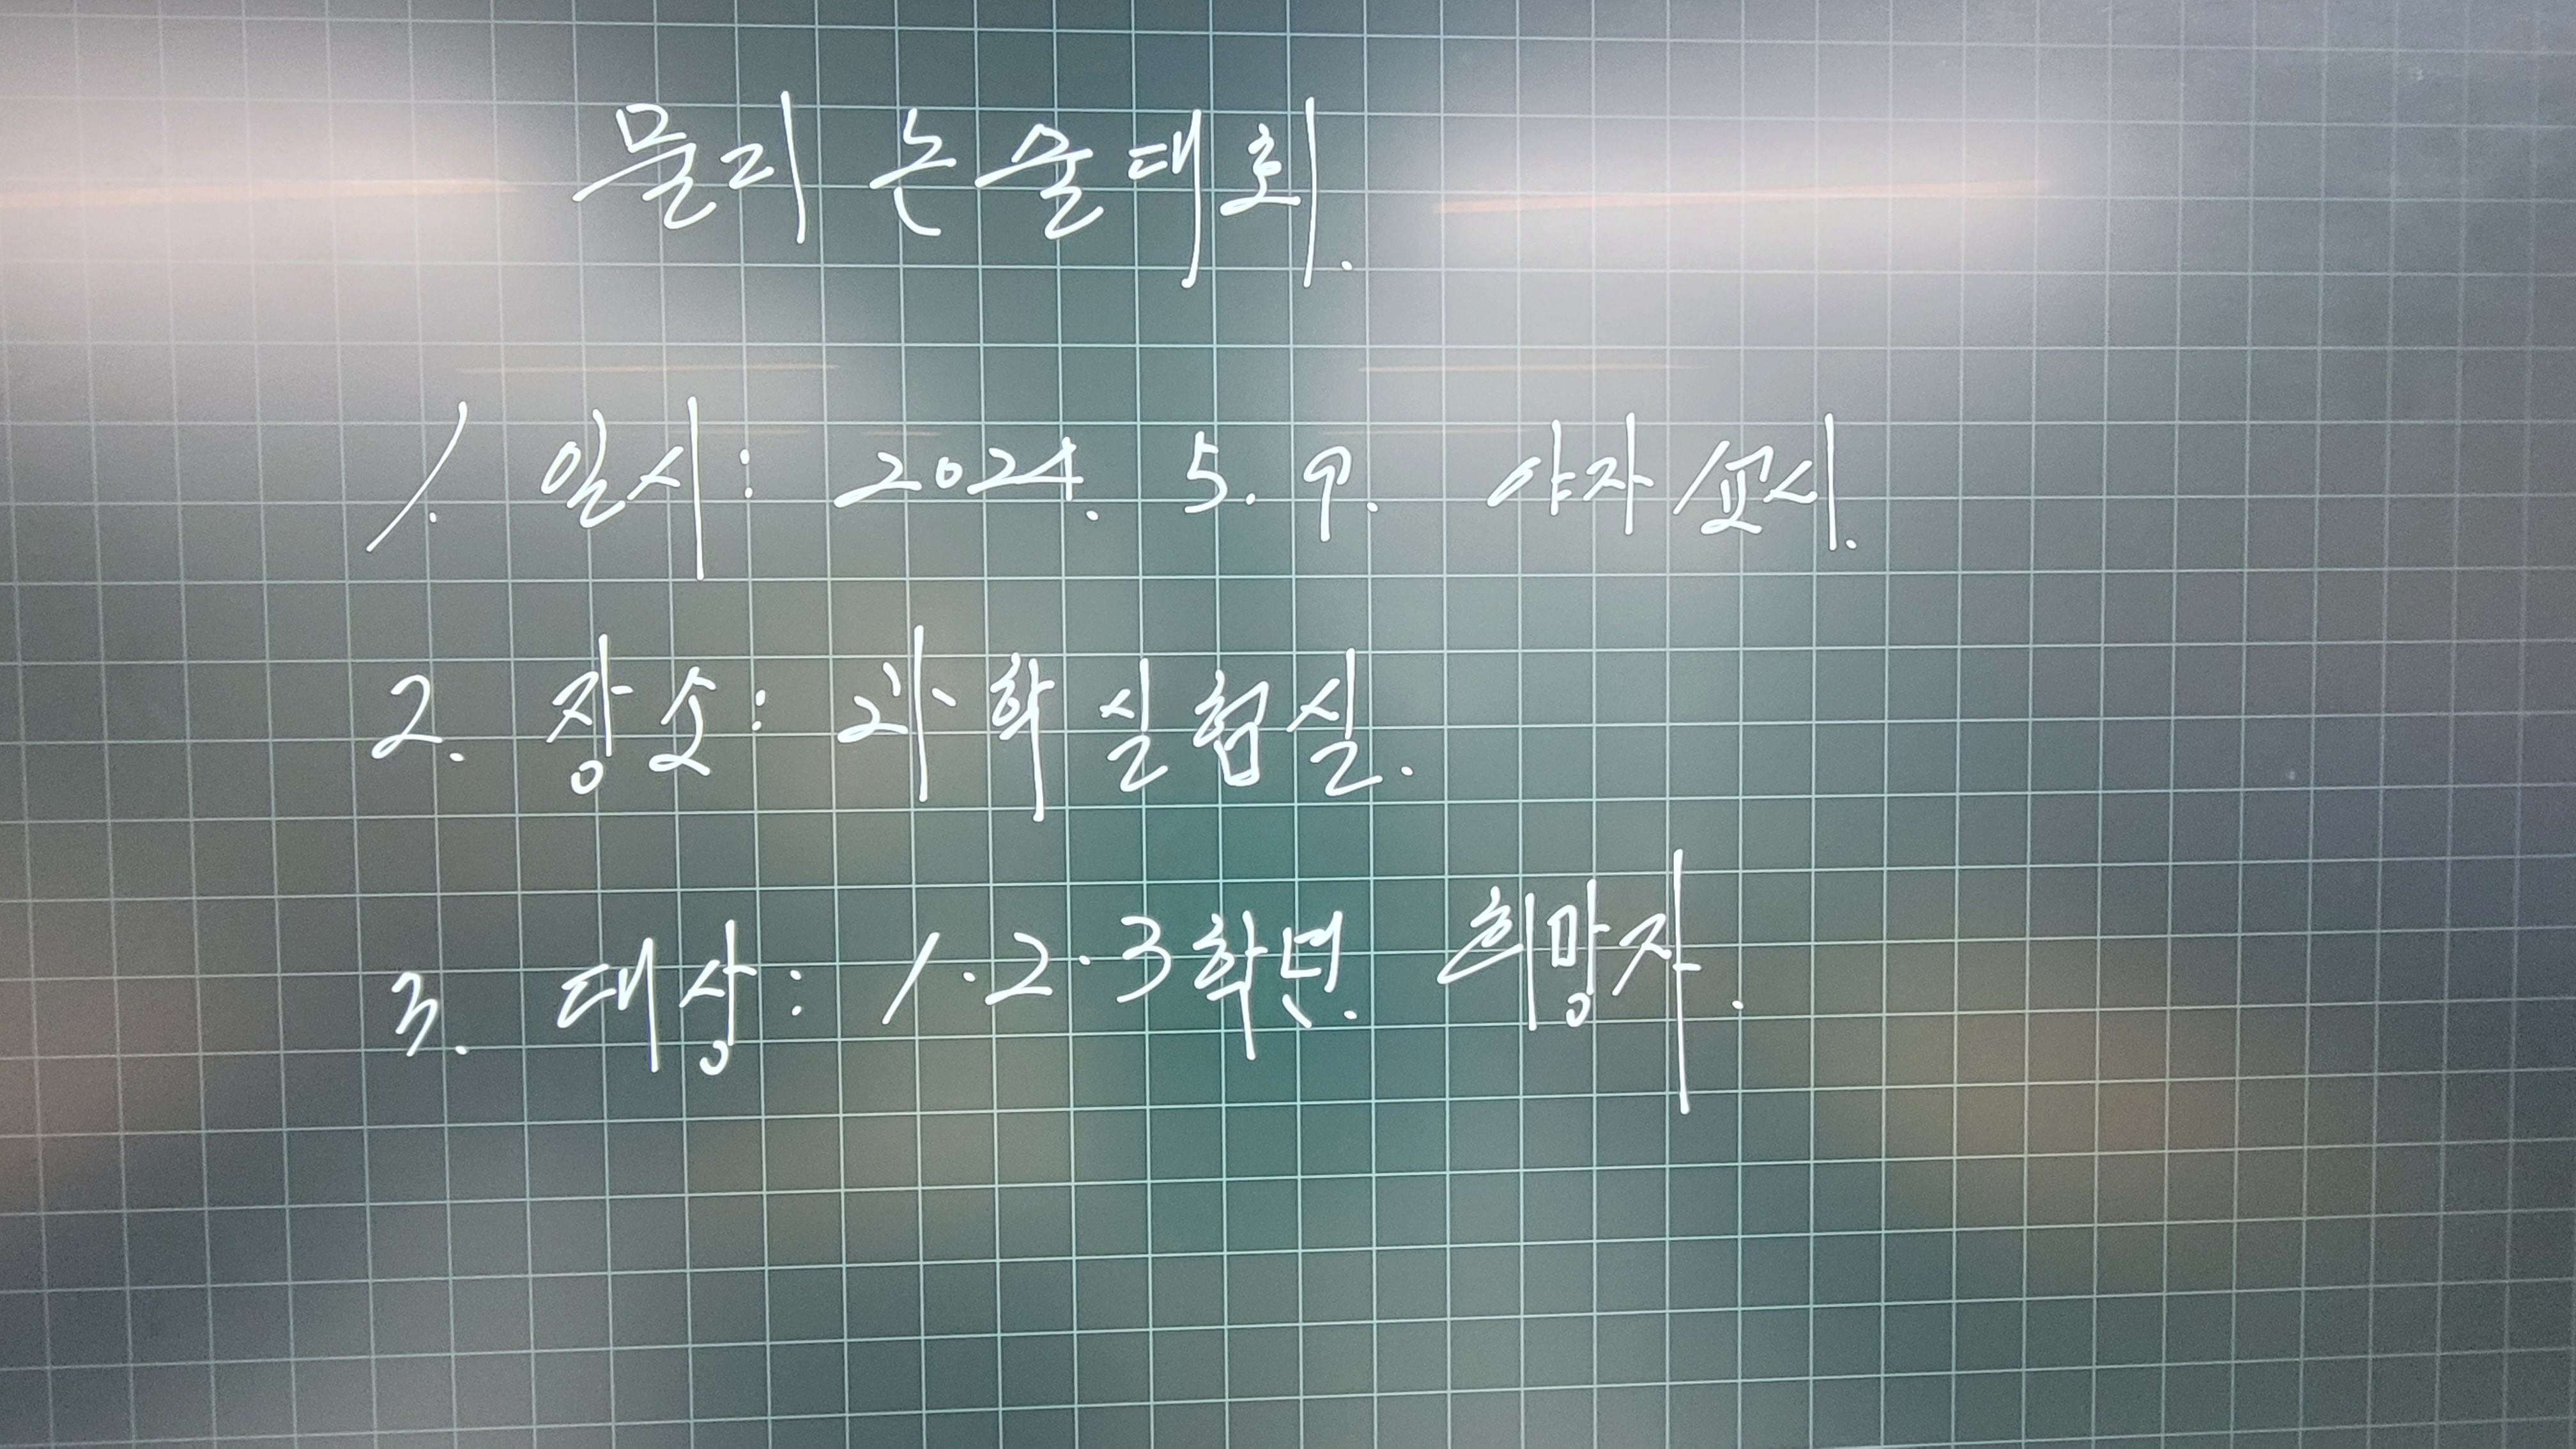 물리 논술대회.
1. 일시: 2024. 5. 9. 야자 1교시.
2. 장소: 과학실험실.
3. 대상: 1·2·3학년. 희망자.